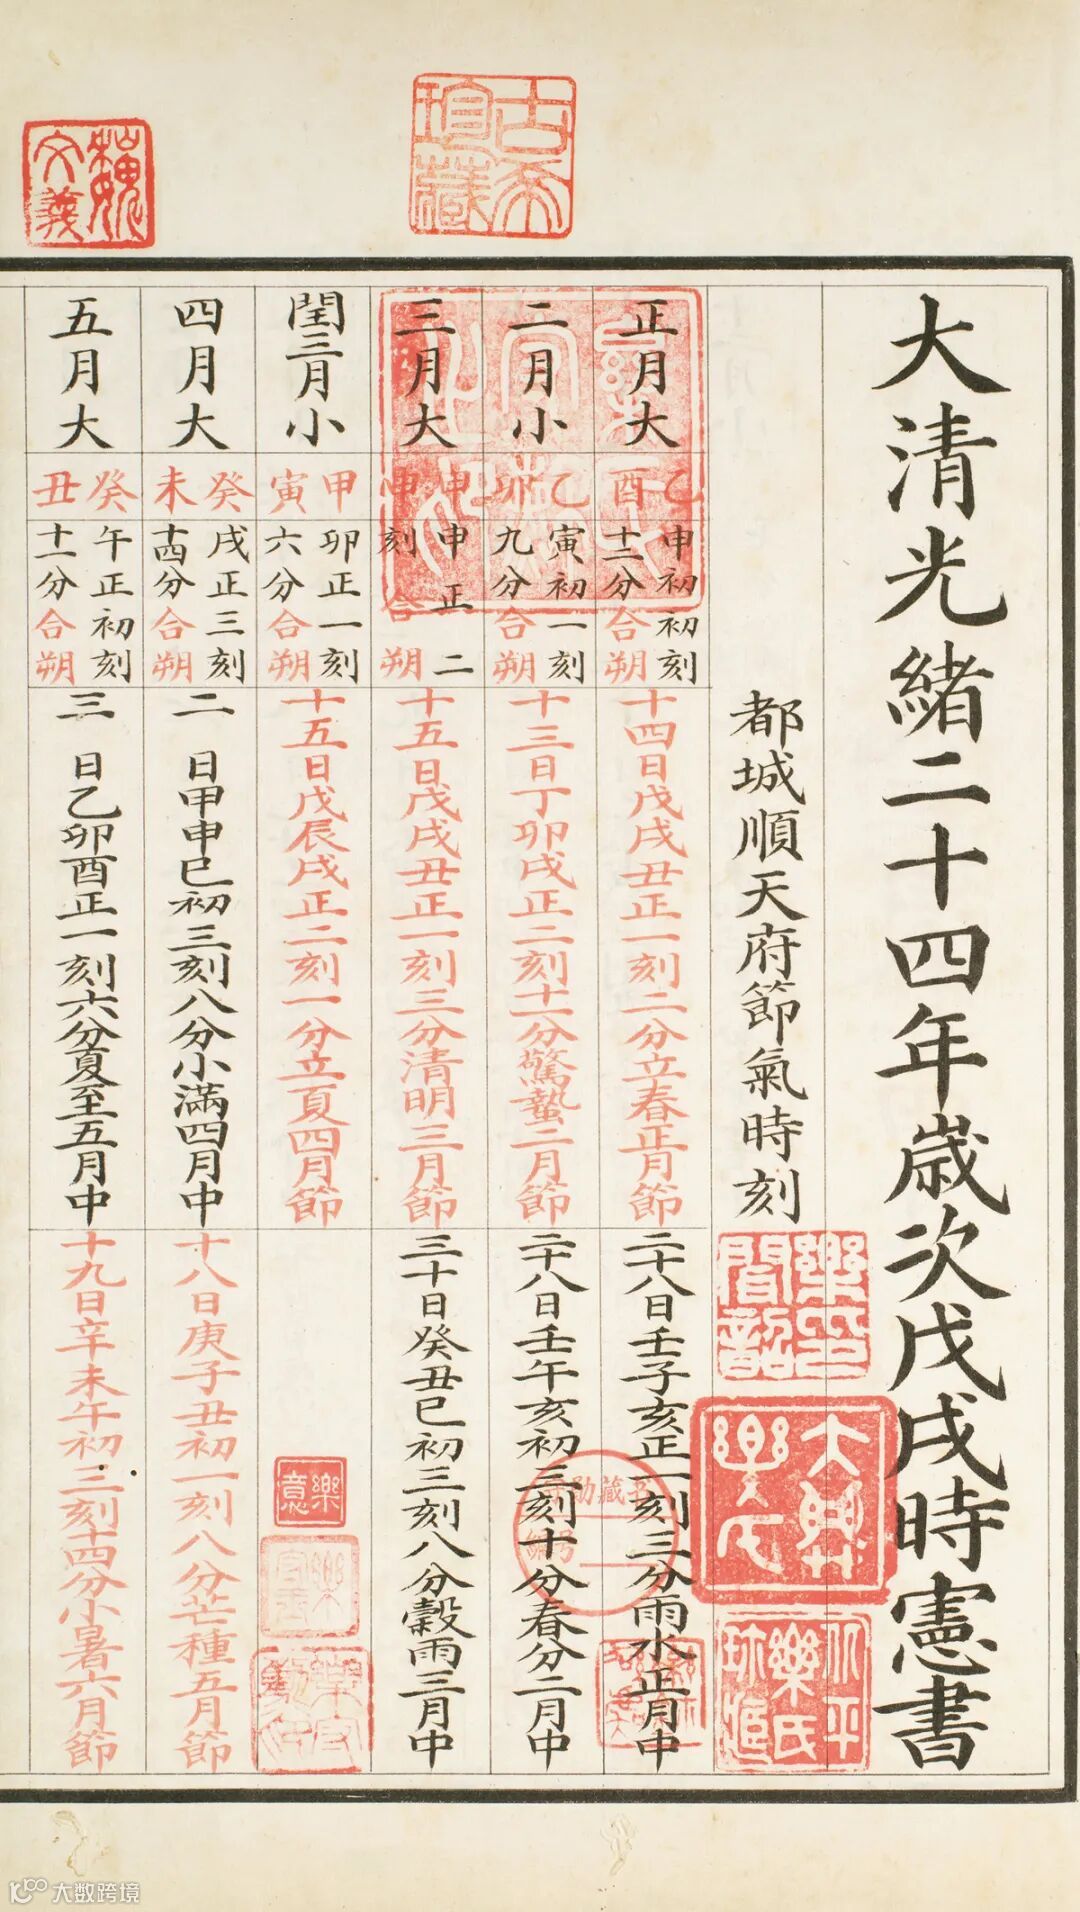 大清光緒二十四年歲次戊戌時憲書
都城順天府節氣時刻
正月大
乙酉
申初初刻十二分合朔
十四日戊戌丑正一刻二分立春正月節
二十八日壬子亥正一刻三分雨水正月中
二月小
乙卯
寅初一刻九分合朔
十三日丁卯戌正二刻十一分驚蟄二月節
二十八日壬午亥初三刻十分春分二月中
三月大
甲申
申正二刻合朔
十五日戊戌丑正一刻三分清明三月節
三十日癸丑巳初三刻八分穀雨三月中
閏三月小
甲寅
卯正一刻六分合朔
十五日戊辰戌正二刻一分立夏四月節
四月大
癸未
戌正三刻十四分合朔
二日甲申巳初三刻八分小滿四月中
十八日庚子丑初一刻八分芒種五月節
五月大
癸丑
午正初刻十一分合朔
三日乙卯酉正一刻六分夏至五月中
十九日辛未午初三刻十四分小暑六月節
大興
樂氏
樂意
大数跨境